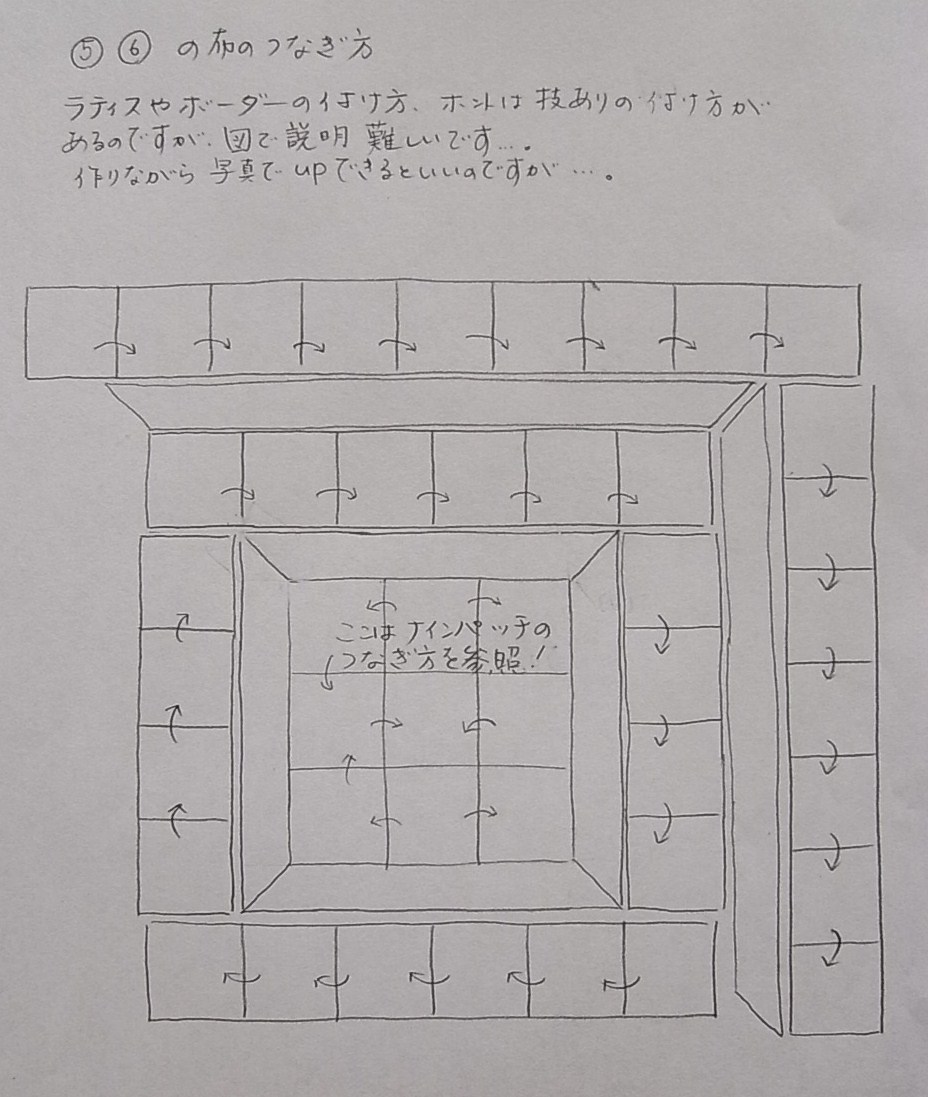 ⑤ ⑥ の布のつなぎ方
ラティスやボーダーの付け方、ホントは技ありの付け方が
あるのですが、図で説明 難しいです…。
作りながら写真でupできるといいのですが…。
ここはナインパッチの
つなぎ方を参照!